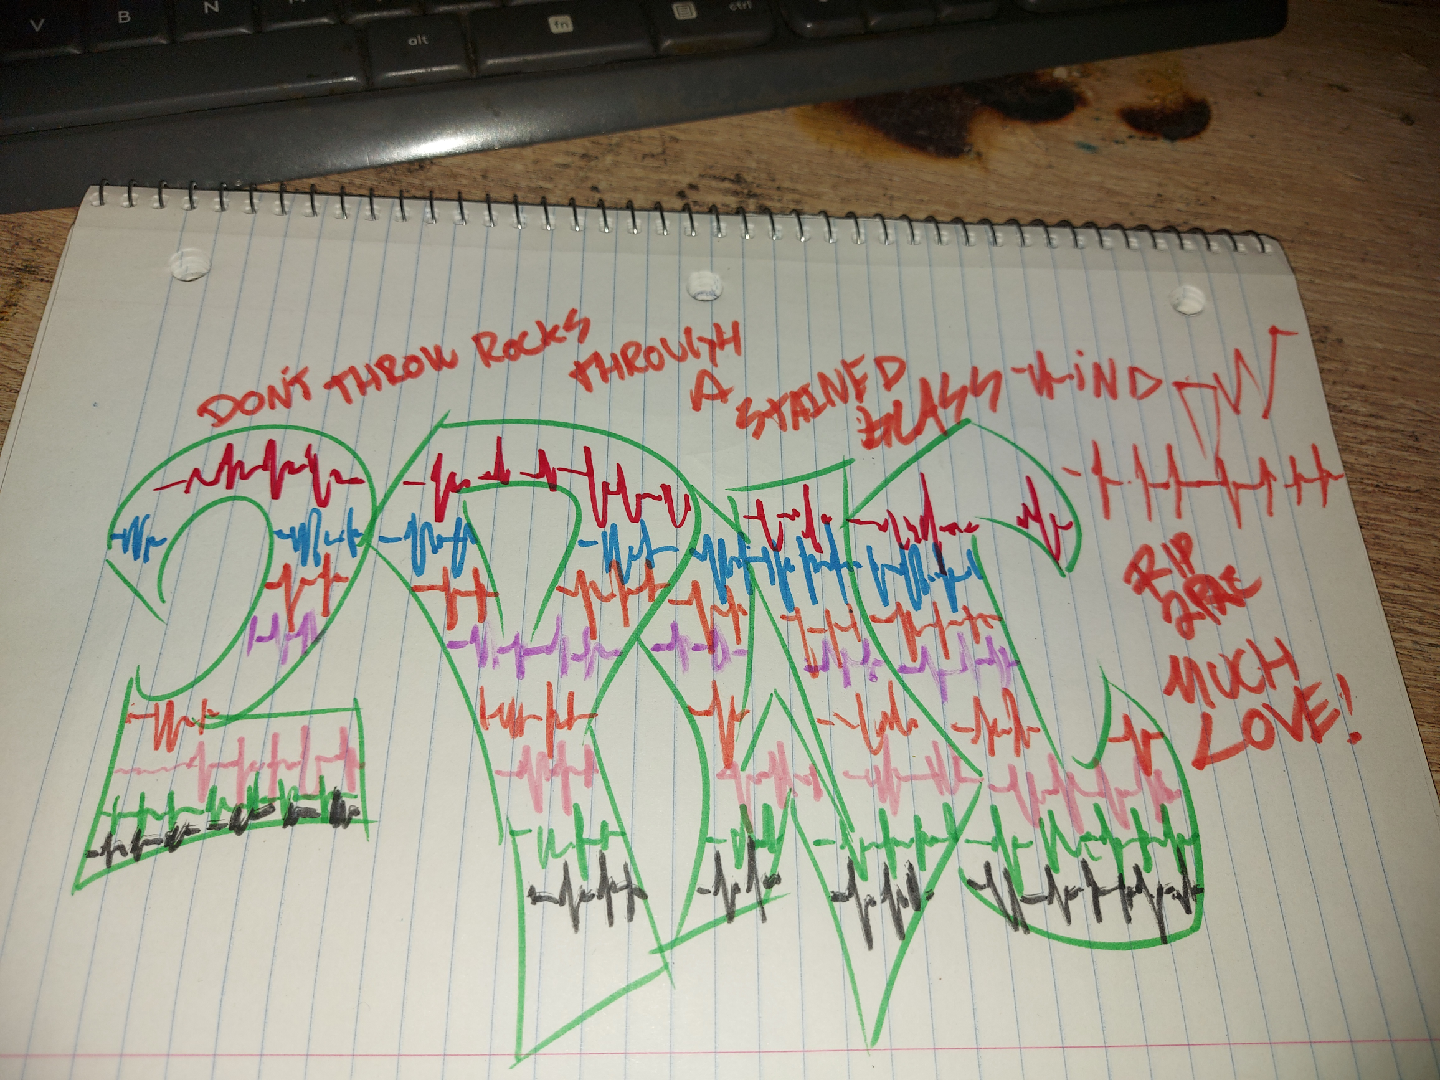 V B N alt fn ctrl
DON'T THROW ROCKS THROUGH A STAINED GLASS WINDOW
RIP
2PAC
MUCH
LOVE!